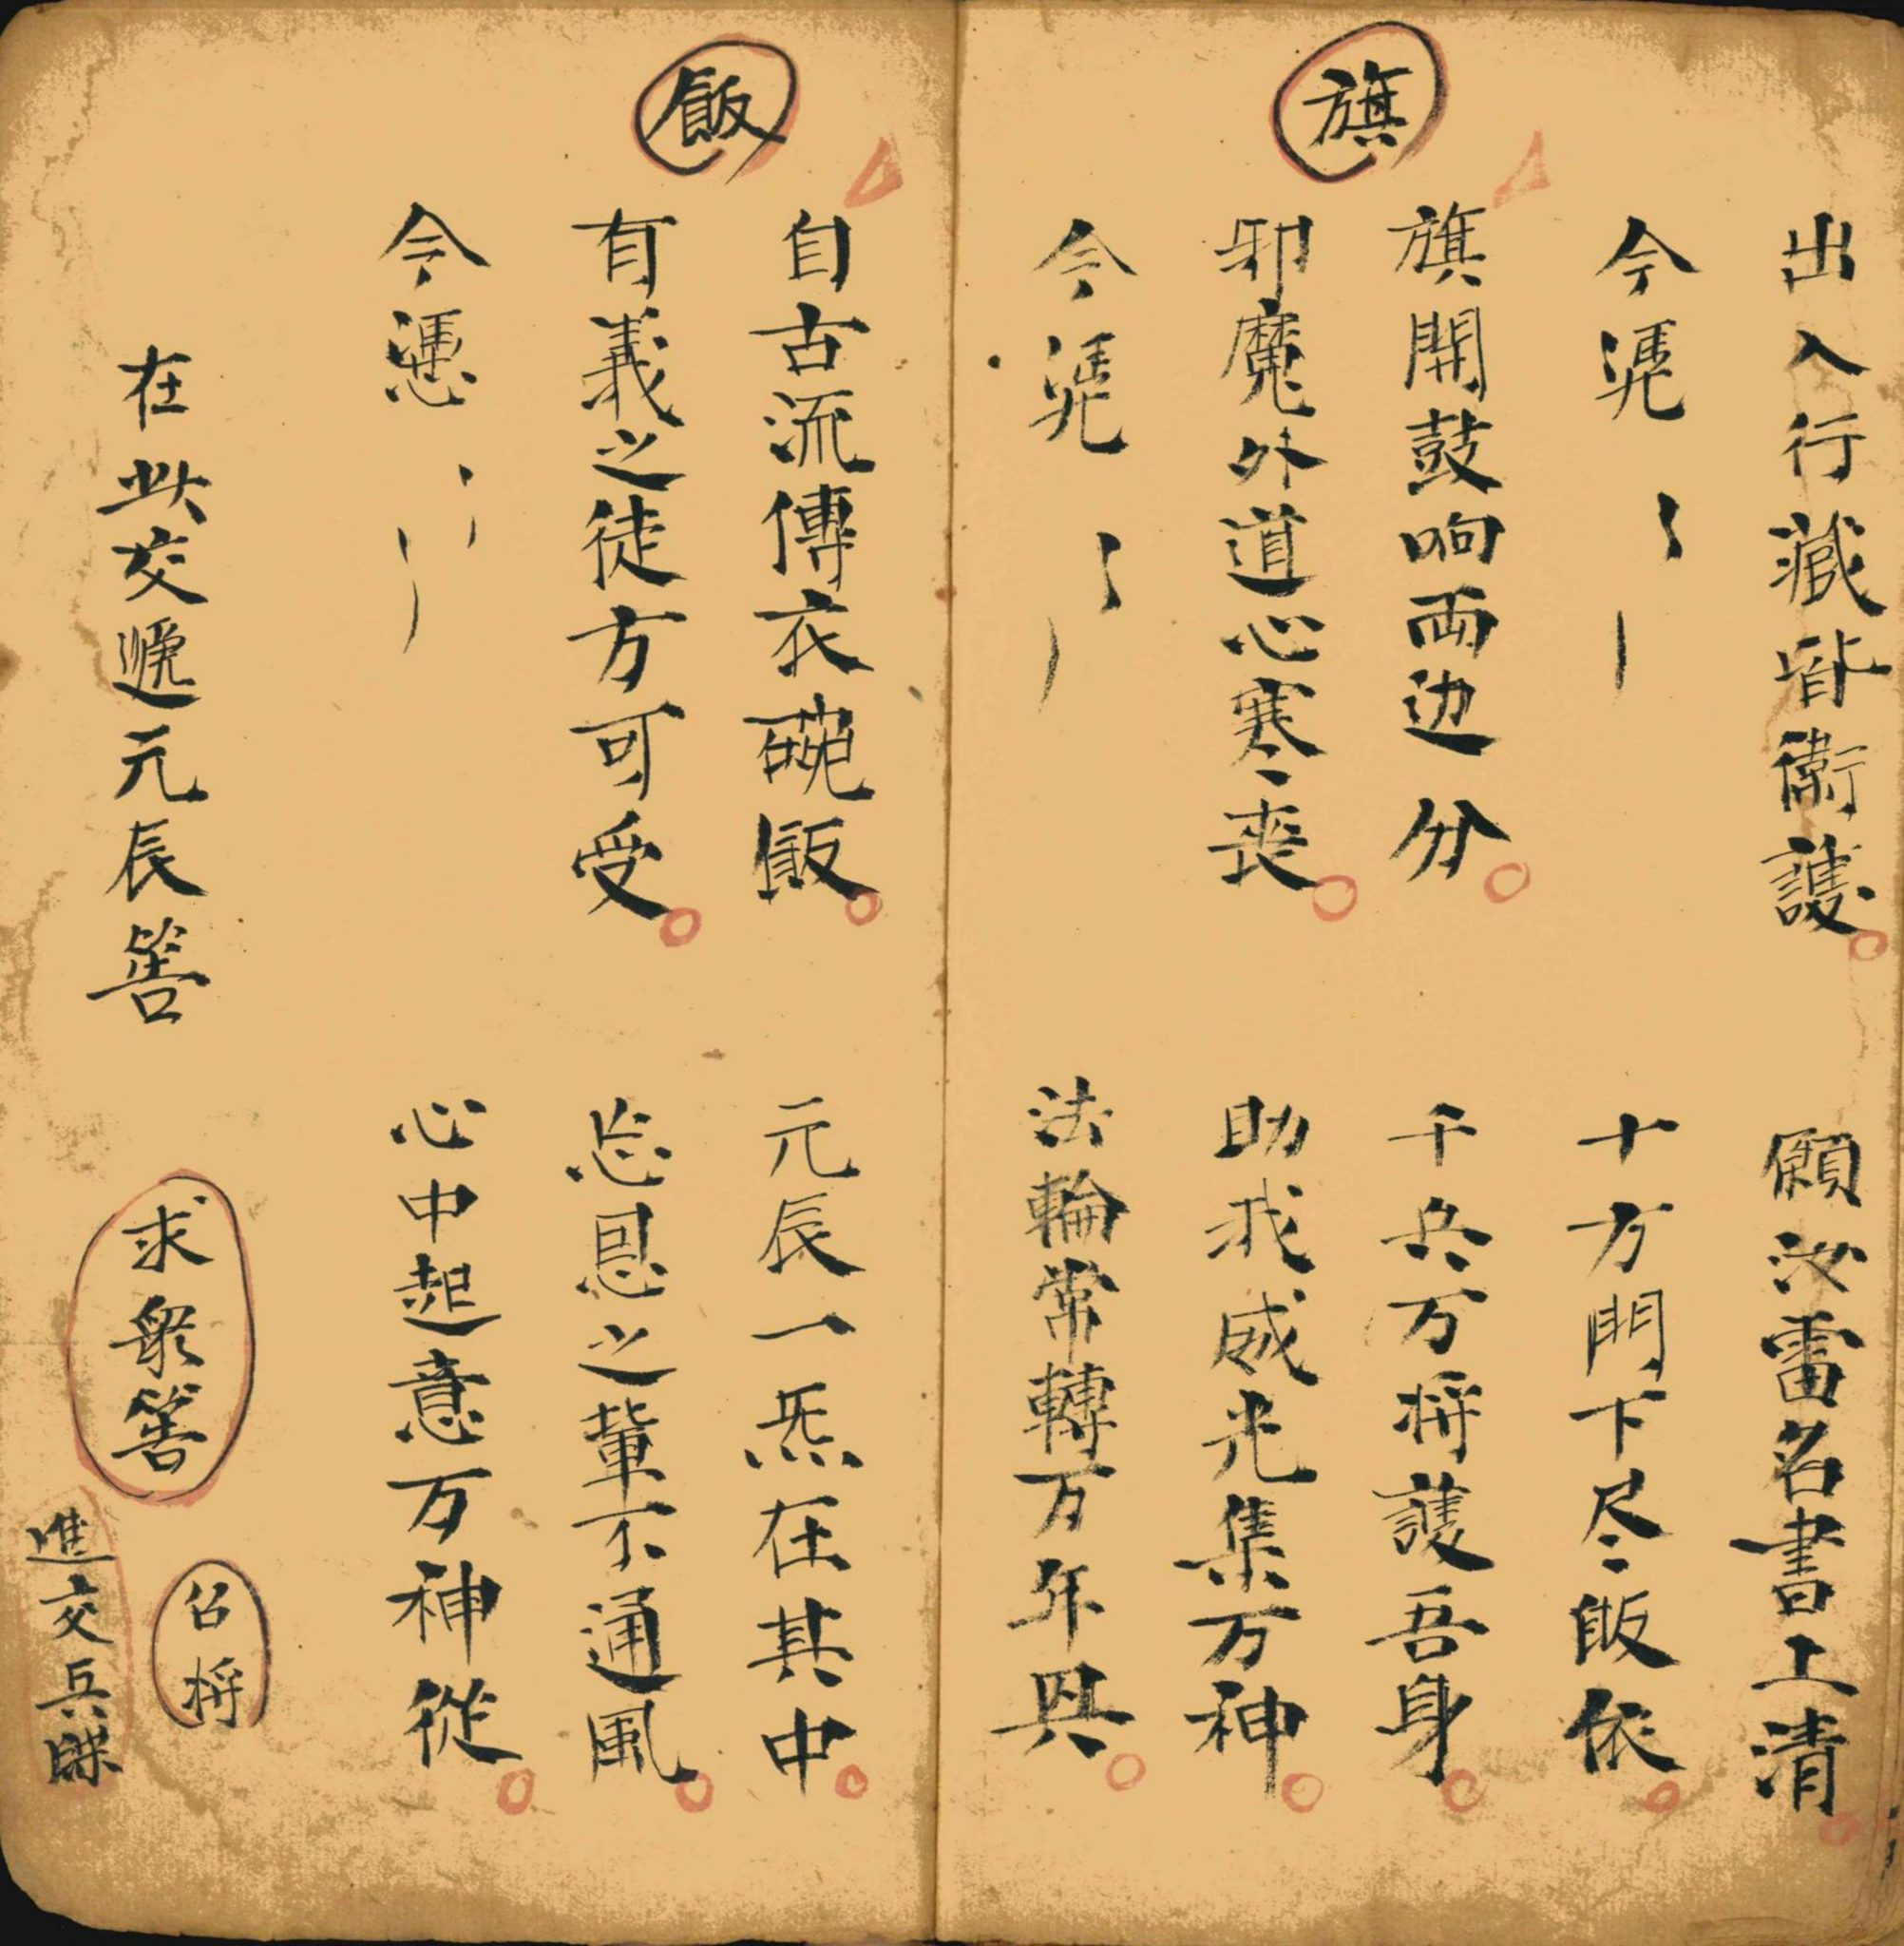 出入行藏皆衛護　願汝雷名書上清
今凴〻丨　十方門下尽皈依
旗
旗開鼓响両边分　千兵万将護吾身
邪魔外道心寒丧　助我威光集万神
今凴〻丨　法輪常轉万年興
飯
自古流傳衣碗飯　元辰一炁在其中
有義之徒方可受　忘恩之輩不通風
今憑　心中起意万神從
在此交遞元辰筶
求眾筶
召将
進交兵牒